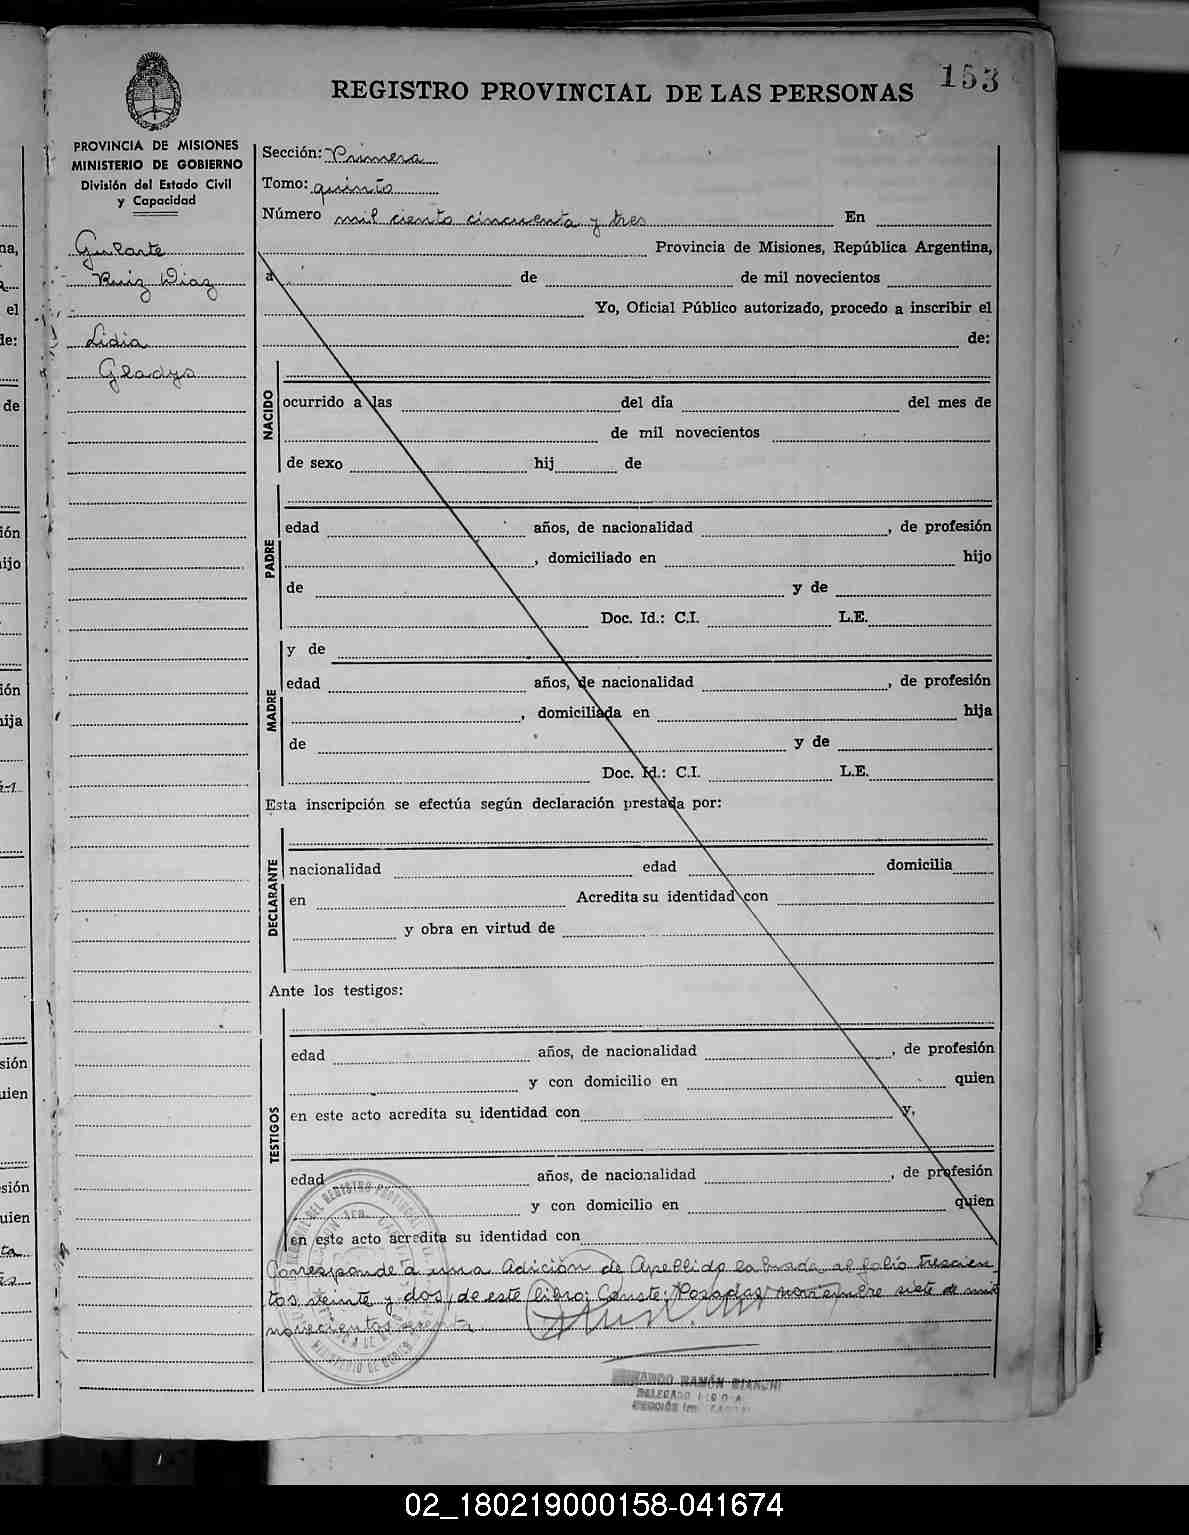 153
REGISTRO PROVINCIAL DE LAS PERSONAS
PROVINCIA DE MISIONES
MINISTERIO DE GOBIERNO
División del Estado Civil
y Capacidad
Gularte
Ruiz Diaz
Lidia
Gladys
Sección: Primera
Tomo: quinto
Número mil ciento cincuenta y tres En
Provincia de Misiones, República Argentina,
a de de mil novecientos
Yo, Oficial Público autorizado, procedo a inscribir el
de:
NACIDO
ocurrido a las del día del mes de
de mil novecientos
de sexo hij de
PADRE
edad años, de nacionalidad , de profesión
, domiciliado en hijo
de y de
Doc. Id.: C.I. L.E.
MADRE
y de
edad años, de nacionalidad , de profesión
, domiciliada en hija
de y de
Doc. Id.: C.I. L.E.
Esta inscripción se efectúa según declaración prestada por:
DECLARANTE
nacionalidad edad domicilia
en Acredita su identidad con
y obra en virtud de
Ante los testigos:
TESTIGOS
edad años, de nacionalidad , de profesión
y con domicilio en quien
en este acto acredita su identidad con y,
edad años, de nacionalidad , de profesión
y con domicilio en quien
en este acto acredita su identidad con
Corresponde a una Adición de Apellido labrada al folio trescien
tos veinte y dos, de este libro; Conste: Posadas noviembre siete de mil
novecientos
RAMÓN BIANCHI
02_180219000158-041674